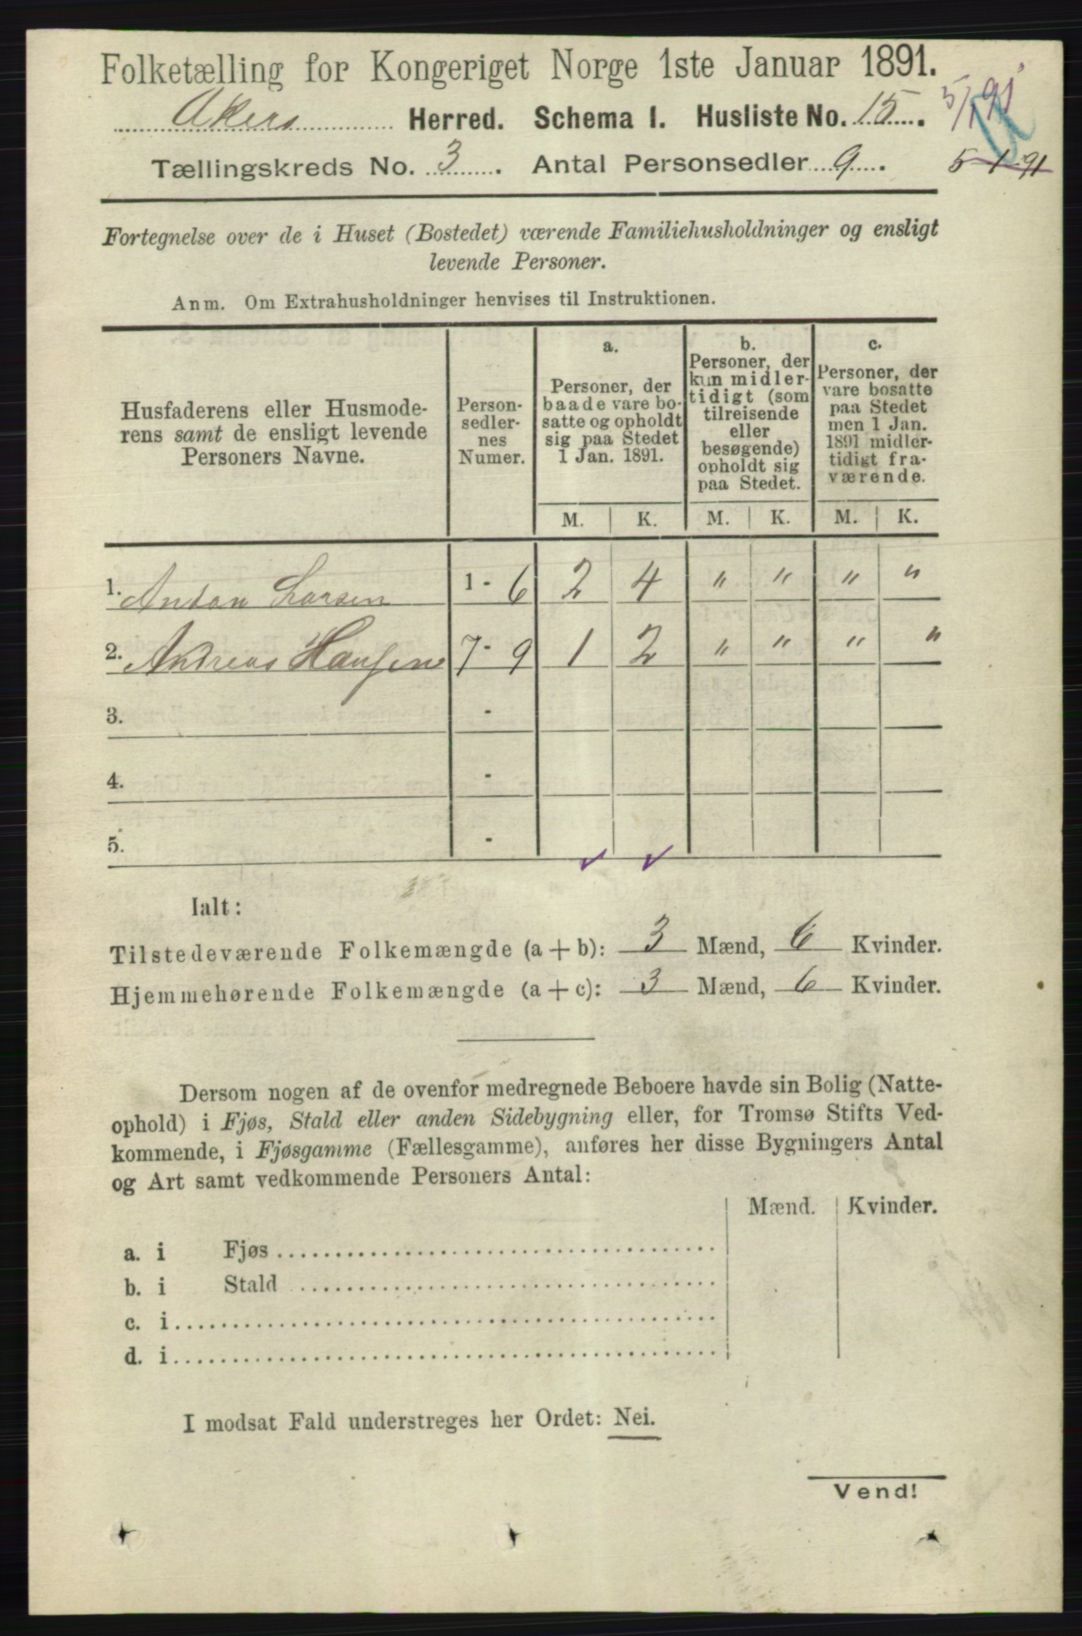 Folketælling for Kongeriget Norge 1ste Januar 1891.
Akers Herred. Schema I. Husliste No. 15.
5/1 91
Tællingskreds No. 3. Antal Personsedler 9.
5-1-91
Fortegnelse over de i Huset (Bostedet) værende Familiehusholdninger og ensligt
levende Personer.
Anm. Om Extrahusholdninger henvises til Instruktionen.
Husfaderens eller Husmode-
rens samt de ensligt levende
Personers Navne.
Person-
sedler-
nes
Numer.
a.
Personer, der
baade vare bo-
satte og opholdt
sig paa Stedet
1 Jan. 1891.
b.
Personer, der
kun midler-
tidigt (som
tilreisende
eller
besøgende)
opholdt sig
paa Stedet.
c.
Personer, der
vare bosatte
paa Stedet
men 1 Jan.
1891 midler-
tidigt fra-
værende.
M. K. M. K. M. K.
1. Anton Larsen 1 - 6 2 4 " " " "
2. Andreas Hansen 7 - 9 1 2 " " " "
3. -
4. -
5. -
Ialt:
Tilstedeværende Folkemængde (a + b): 3 Mænd, 6 Kvinder.
Hjemmehørende Folkemængde (a + c): 3 Mænd, 6 Kvinder.
Dersom nogen af de ovenfor medregnede Beboere havde sin Bolig (Natte-
ophold) i Fjøs, Stald eller anden Sidebygning eller, for Tromsø Stifts Ved-
kommende, i Fjøsgamme (Fællesgamme), anføres her disse Bygningers Antal
og Art samt vedkommende Personers Antal:
Mænd. Kvinder.
a. i Fjøs
b. i Stald
c. i
d. i
I modsat Fald understreges her Ordet: Nei.
Vend!